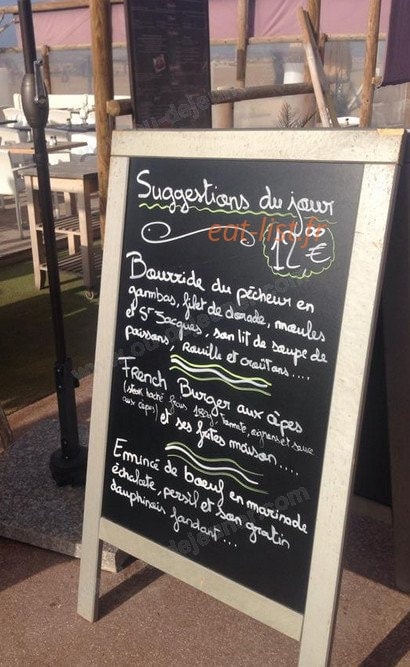 Suggestions du jour
eat-list.fr
12,€
Bourride du pêcheur en
gambas, filet de dorade, moules
et St Jacques. son lit de soupe de
poissons, Rouille et croûtons....
French Burger aux cèpes
(steak haché frais 180g, tomate, oignons et sauce
aux cèpes) et ses frites maison....
Emincé de boeuf en marinade
échalote, persil et son gratin
dauphinois fondant...